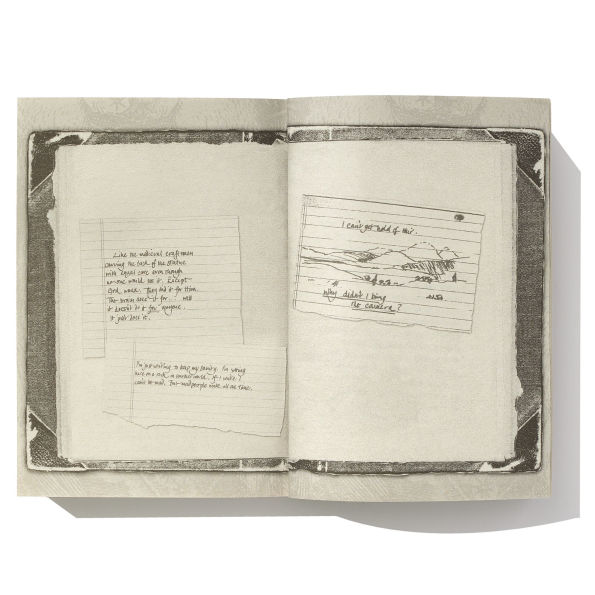 Like the medieval craftsmen
carving the back of the statue
with equal care even though
no-one would see it. Except
God would. They did it for Him.
The brain does it for.. well
it doesn't do it for anyone.
It just does it.
I'm writing to keep my sanity. I'm writing
if I write I
can't be mad. But mad people write all the time.
I can't get hold of this.
Why didn't I bring
the camera?